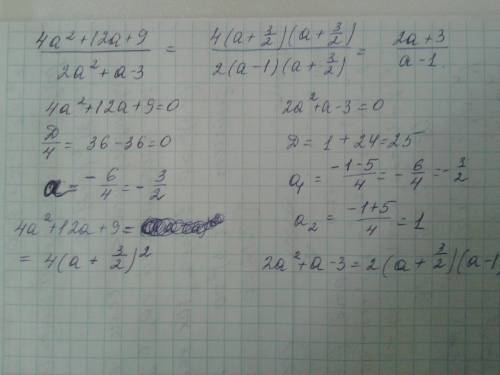 (4a²+12a+9)/(2a²+a-3) = (4(a+3/2)(a+3/2))/(2(a-1)(a+3/2)) = (2a+3)/(a-1)
4a²+12a+9=0
Д/4 = 36-36=0
a = -6/4 = -3/2
4a²+12a+9=
= 4(a+3/2)²
2a²+a-3=0
D = 1+24=25
a₁ = (-1-5)/4 = -6/4 = -3/2
a₂ = (-1+5)/4 = 1
2a²+a-3=2(a+3/2)(a-1